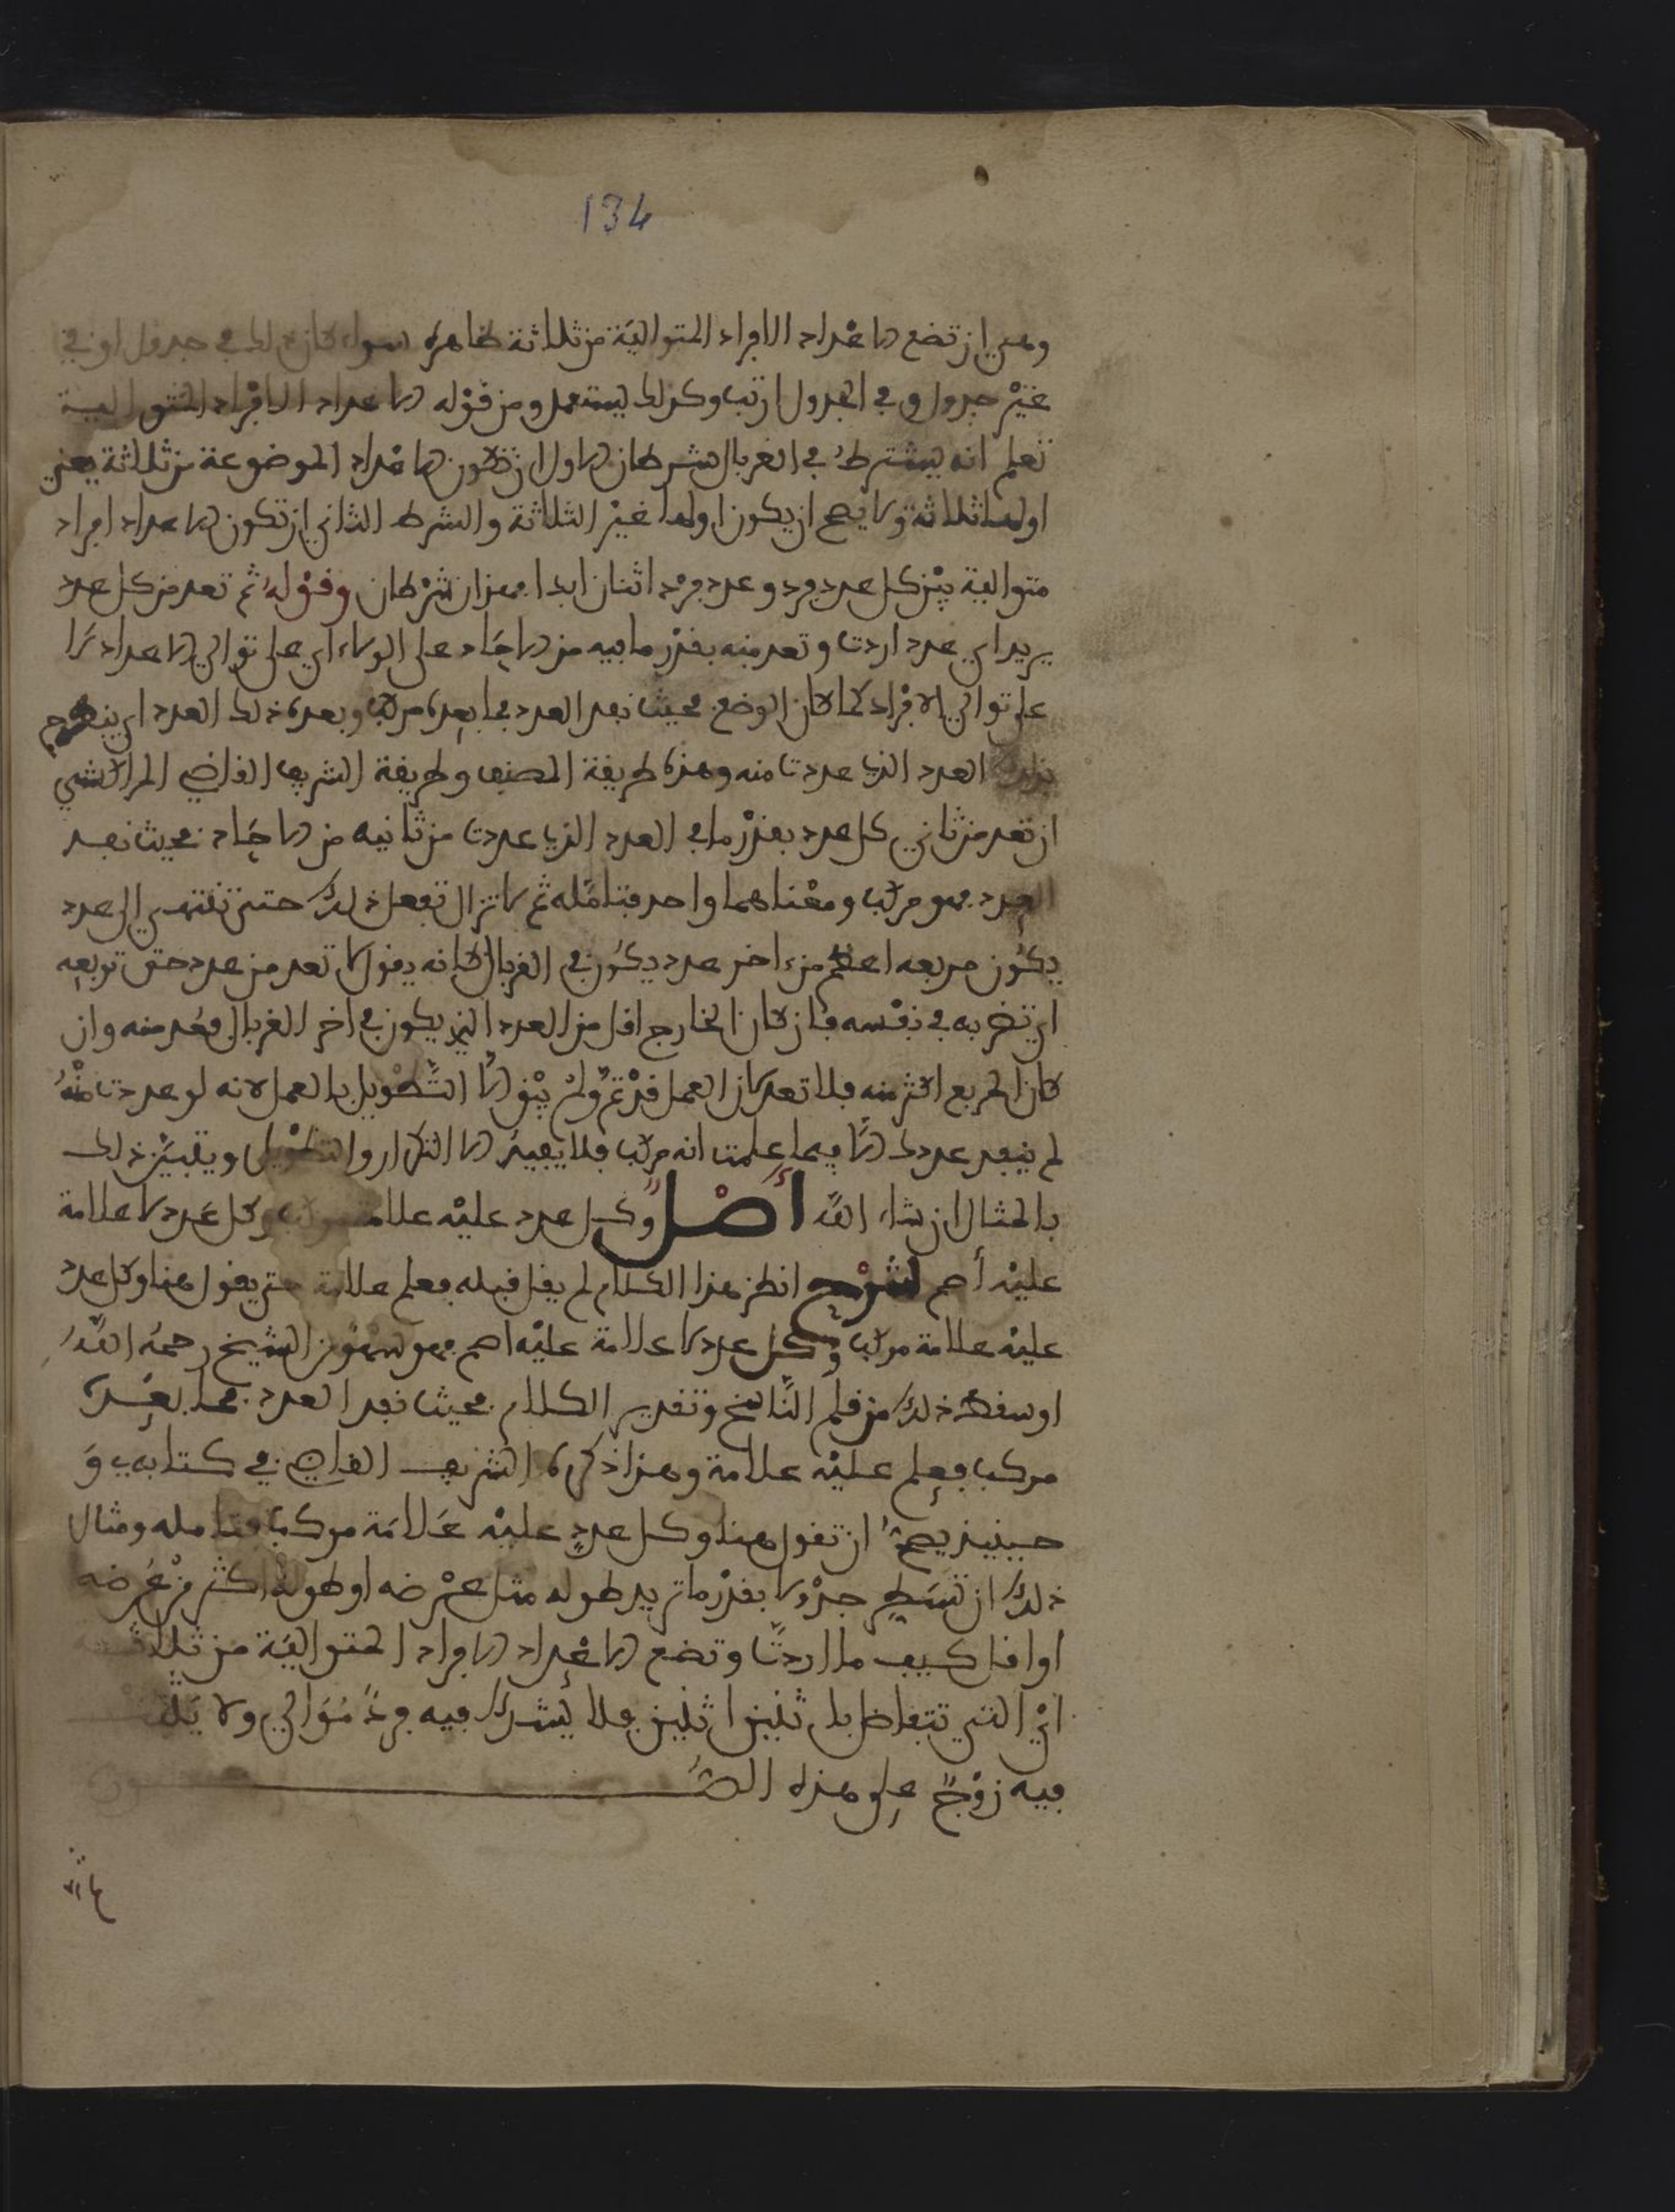 134
وهي ان تضع الاعداد الافراد المتوالية من ثلاثة ظاهره سواء كان ذلك في جدول او في
غير جدول وفي الجدول ارتب وكذلك يستعمل ومن قوله الاعداد الافراد المتوالية
تعلم انه يشترط في الغربال شرطان الاول ان تكون الاعداد الموضوعة من ثلاثة يعني
اولها ثلاثة ولا يصح ان يكون اولها غير الثلاثة والشرط الثاني ان تكون الاعداد افراد
متوالية بين كل عدد فرد وعدد فرد اثنان ابدا فهذان شرطان وقوله ثم تعد من كل عدد
يريد اي عدد اردت وتعد منه بقدر ما فيه من الاحاد على الولاء اي على توالي الاعداد لا
على توالي الافراد كما كان الوضع فحيث نفد العدد فما بعده مركب وبعده ذلك العدد اي
بذلك العدد الذي عددت منه وهذه طريقة المصنف وطريقة الشريف القاضي المراكشي
ان تعد من ثاني كل عدد بقدر ما في العدد الذي عددت من ثانيه من الاحاد فحيث نفد
العدد فهو مركب ومعناهما واحد فتامله ثم لا تزال تفعل ذلك حتى تنتهي الى عدد
يكون مربعه اعظم من اخر عدد يكون في الغربال كانه يقول لا تعد من عدد حتى تربعه
اي تضربه في نفسه فان كان الخارج اقل من العدد الذي يكون في اخر الغربال فعد منه وان
كان المربع اكثر منه فلا تعد لان العمل قد تم ولم يبق الا التطويل بالعمل لانه لو عددت منه
لم ينفد عددك الا فيما علمت انه مركب فلا يفيد الا التكرار والتطويل ويتبين ذلك
بالمثال ان شاء الله اصل وكل عدد عليه علامة مركب وكل عدد لا علامة
عليه أصم الشرح انظر هذا الكلام لم يقل قبله فعلم علامة حتى يقول هنا وكل عدد
عليه علامة مركب وكل عدد لا علامة عليه اصم فهو سهو من الشيخ رحمه الله
او سقط ذلك من قلم الناسخ وتقدير الكلام فحيث نفد العدد فما بعده
مركب فعلم عليه علامة وهذا ذكره الشريف القاضي في كتابه و
حينيذ يصح ان تقول هنا وكل عدد عليه علامة مركب فتامله ومثال
ذلك ان تسطر جدولا بقدر ما تريد طوله مثل عرضه او طوله اكثر من عرضه
او اقل كيف ما اردت وتضع الاعداد الافراد المتوالية من ثلاثة
اي التي تتفاضل باثنين اثنين فلا يترك فيه فرد متوالي ولا
فيه زوج على هذه الصـورة